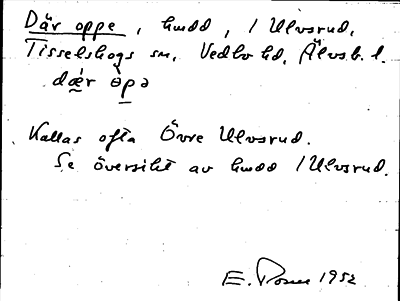 Där oppe, hmdd, i Ulvsrud,
Tisselskogs sn, Vedbo hd, Älvsb. l.
dæ̀r ɔ̀pə
Kallas ofta Övre Ulvsrud.
Se översikt av hmdd i Ulvsrud.
E. 1952